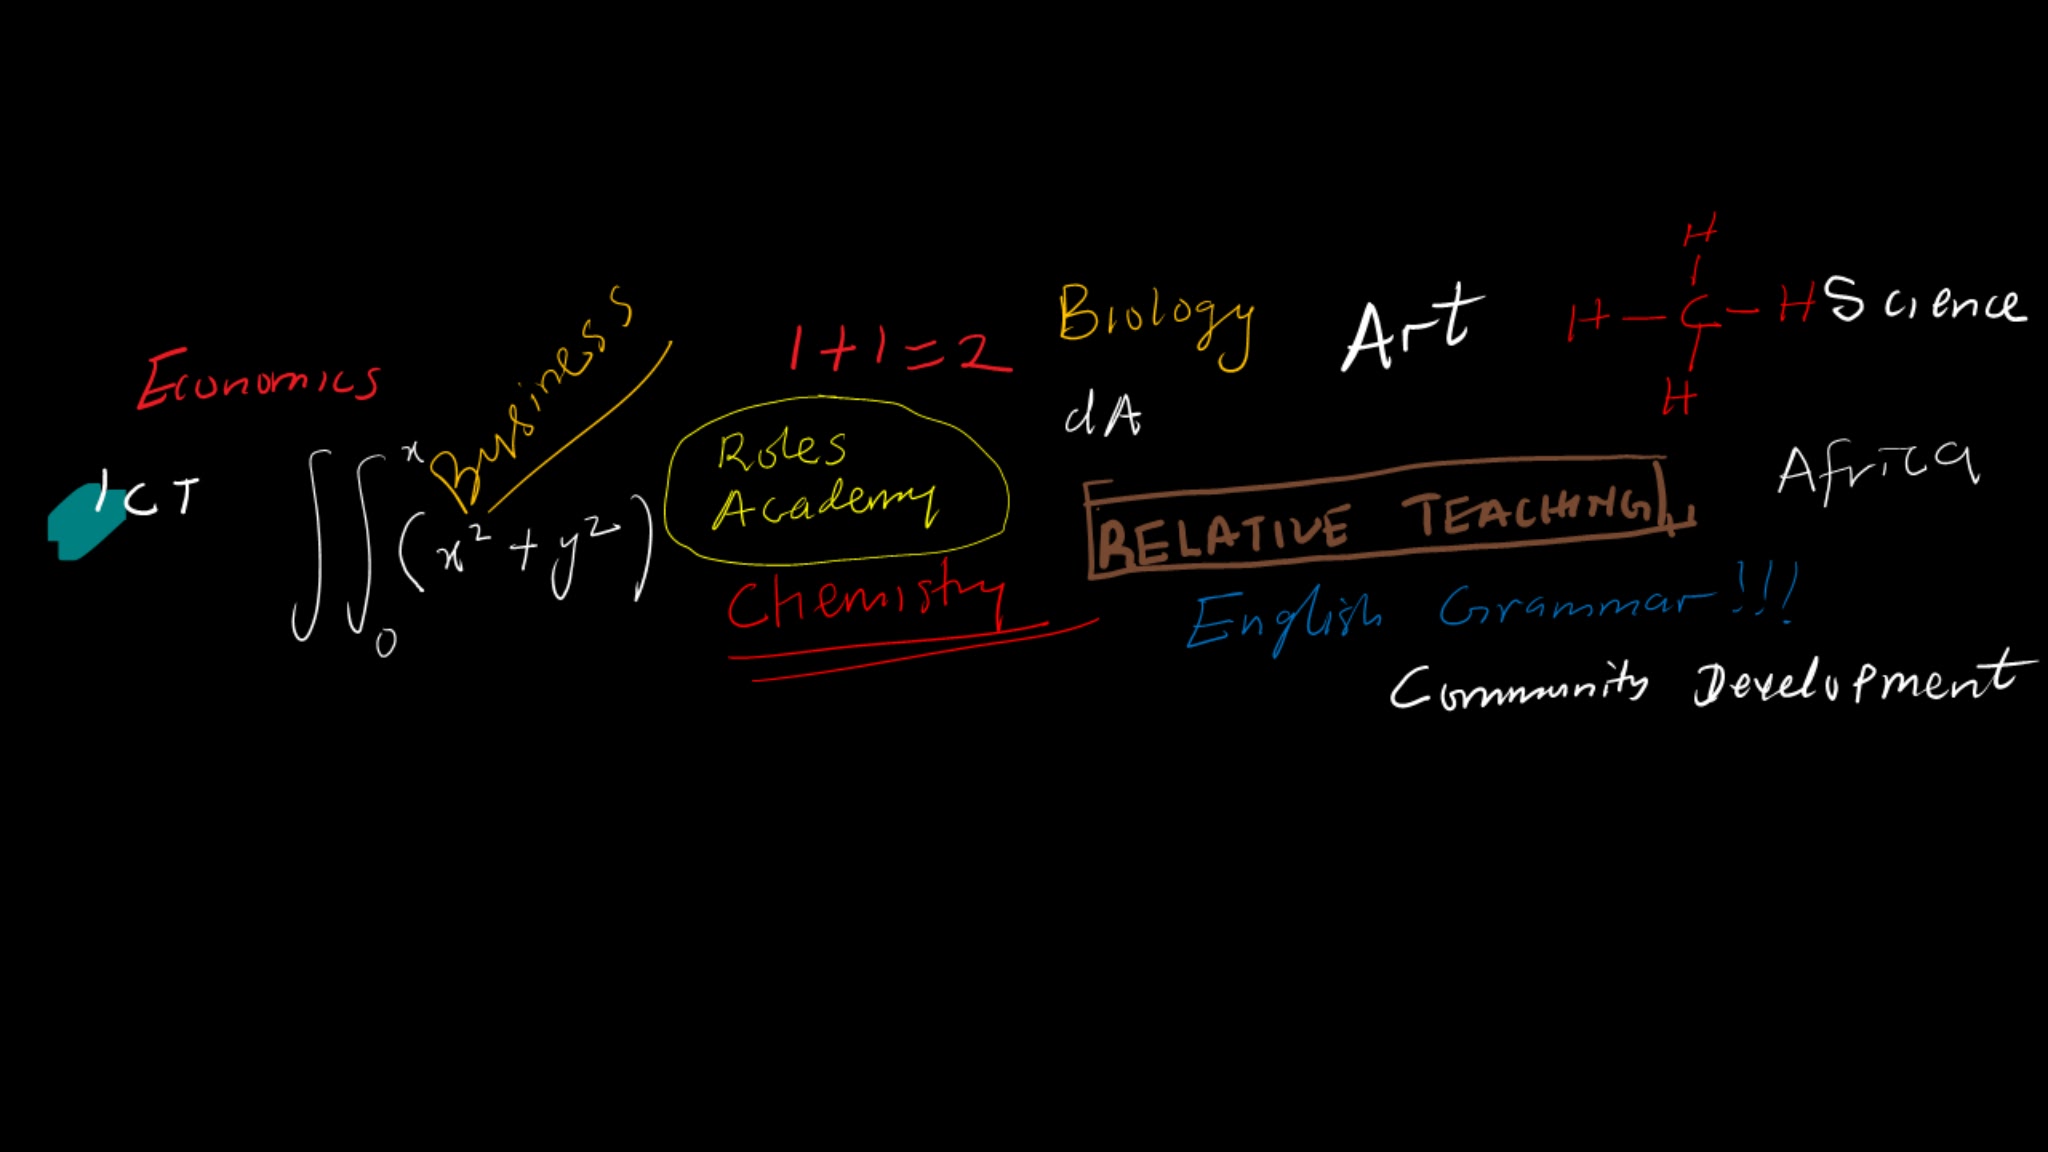 Economics
Business
1+1=2
Biology
Art
H
H—C—H
H
Science
ICT
∫∫₀ˣ (x²+y²)
Roles
Academy
dA
RELATIVE TEACHING
Africa
Chemistry
English Grammar!!!
Community Development